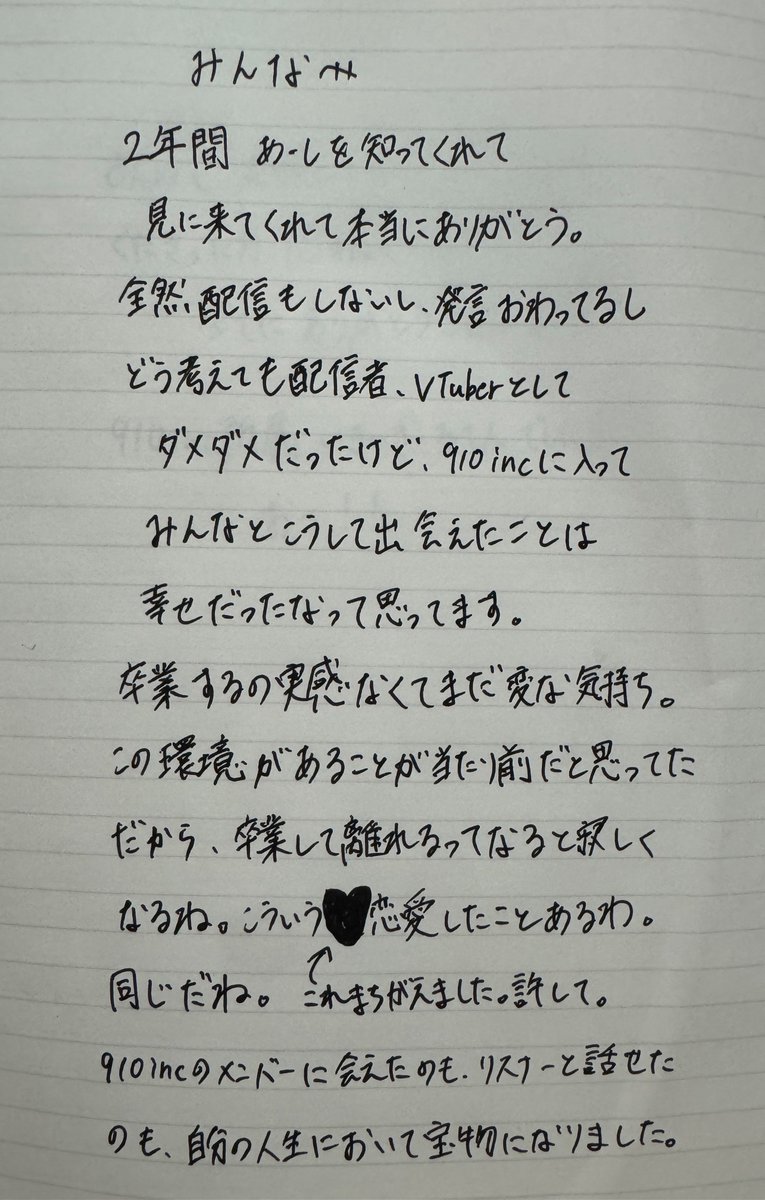 みんな〰
2年間 あーしを知ってくれて
見に来てくれて本当にありがとう。
全然配信もしないし、発言おわってるし
どう考えても配信者、VTuberとして
ダメダメだったけど、910incに入って
みんなとこうして出会えたことは
幸せだったなって思ってます。
卒業するの実感なくてまだ変な気持ち。
この環境があることが当たり前だと思ってた
だから、卒業して離れるってなると寂しく
なるね。こういう♥恋愛したことあるわ。
同じだね。 ↑これまちがえました。許して。
910incのメンバーに会えたのも、リスナーと話せた
のも、自分の人生において宝物になりました。